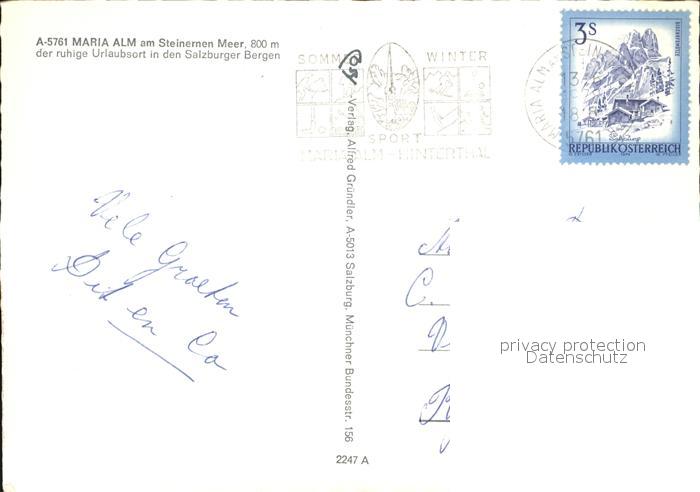 A-5761 MARIA ALM am Steinernen Meer, 800 m
der ruhige Urlaubsort in den Salzburger Bergen
SOMMER WINTER
SPORT
MARIA ALM - HINTERTHAL
MARIA ALM A. STEIN
5761
3 S
REPUBLIK ÖSTERREICH
-Verlag, Alfred Gründler, A-5013 Salzburg, Münchner Bundesstr. 156
Vele Groeten
en Co
privacy protection
Datenschutz
2247 A